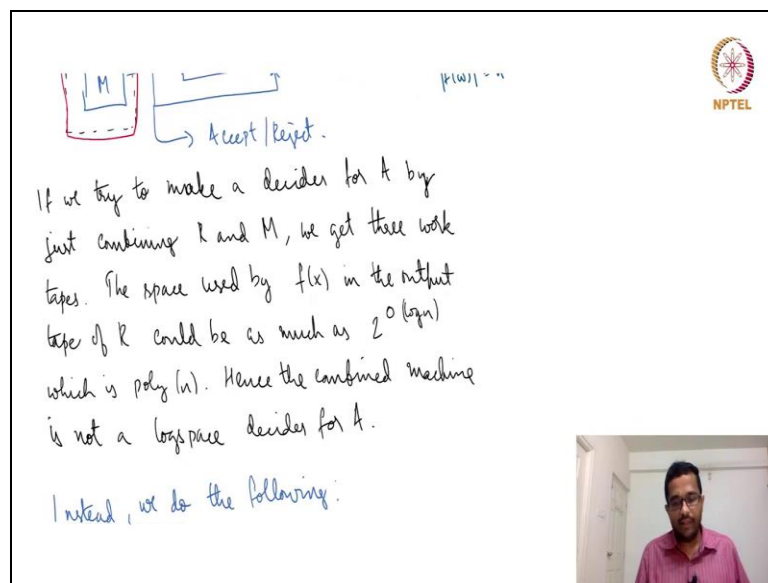 M
NPTEL
Accept/Reject.
If we try to make a decider for A by
just combining R and M, we get three work
tapes. The space used by f(x) in the output
tape of R could be as much as 2^O(logn)
which is poly(n). Hence the combined machine
is not a logspace decider for A.
Instead, we do the following: